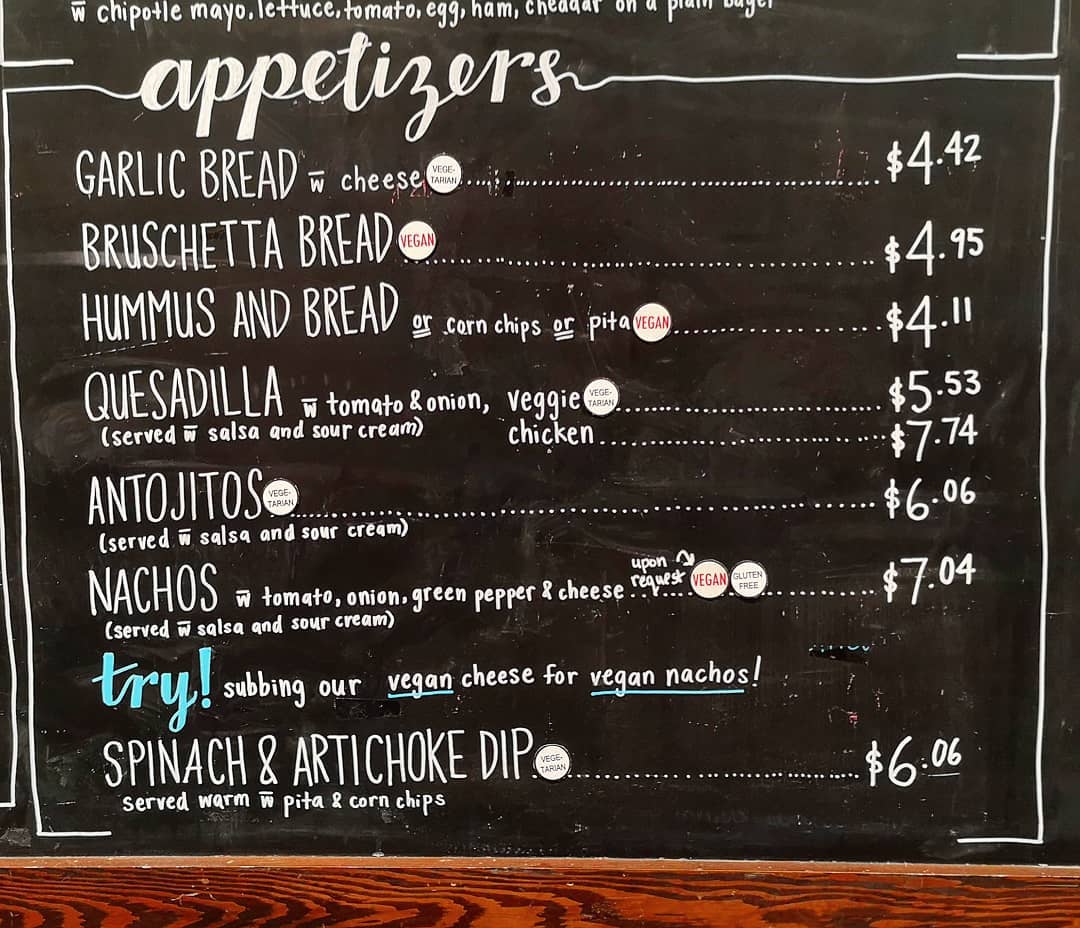 w̅ chipotle mayo, lettuce, tomato, egg, ham, cheddar on a plain bagel
appetizers
GARLIC BREAD w̅ cheese VEGE-TARIAN $4.42
BRUSCHETTA BREAD VEGAN $4.95
HUMMUS AND BREAD or corn chips or pita VEGAN $4.11
QUESADILLA w̅ tomato & onion, veggie VEGE-TARIAN $5.53
(served w̅ salsa and sour cream) chicken $7.74
ANTOJITOS VEGE-TARIAN $6.06
(served w̅ salsa and sour cream)
NACHOS w̅ tomato, onion, green pepper & cheese upon request VEGAN GLUTEN FREE $7.04
(served w̅ salsa and sour cream)
try! subbing our vegan cheese for vegan nachos!
SPINACH & ARTICHOKE DIP VEGE-TARIAN $6.06
served warm w̅ pita & corn chips